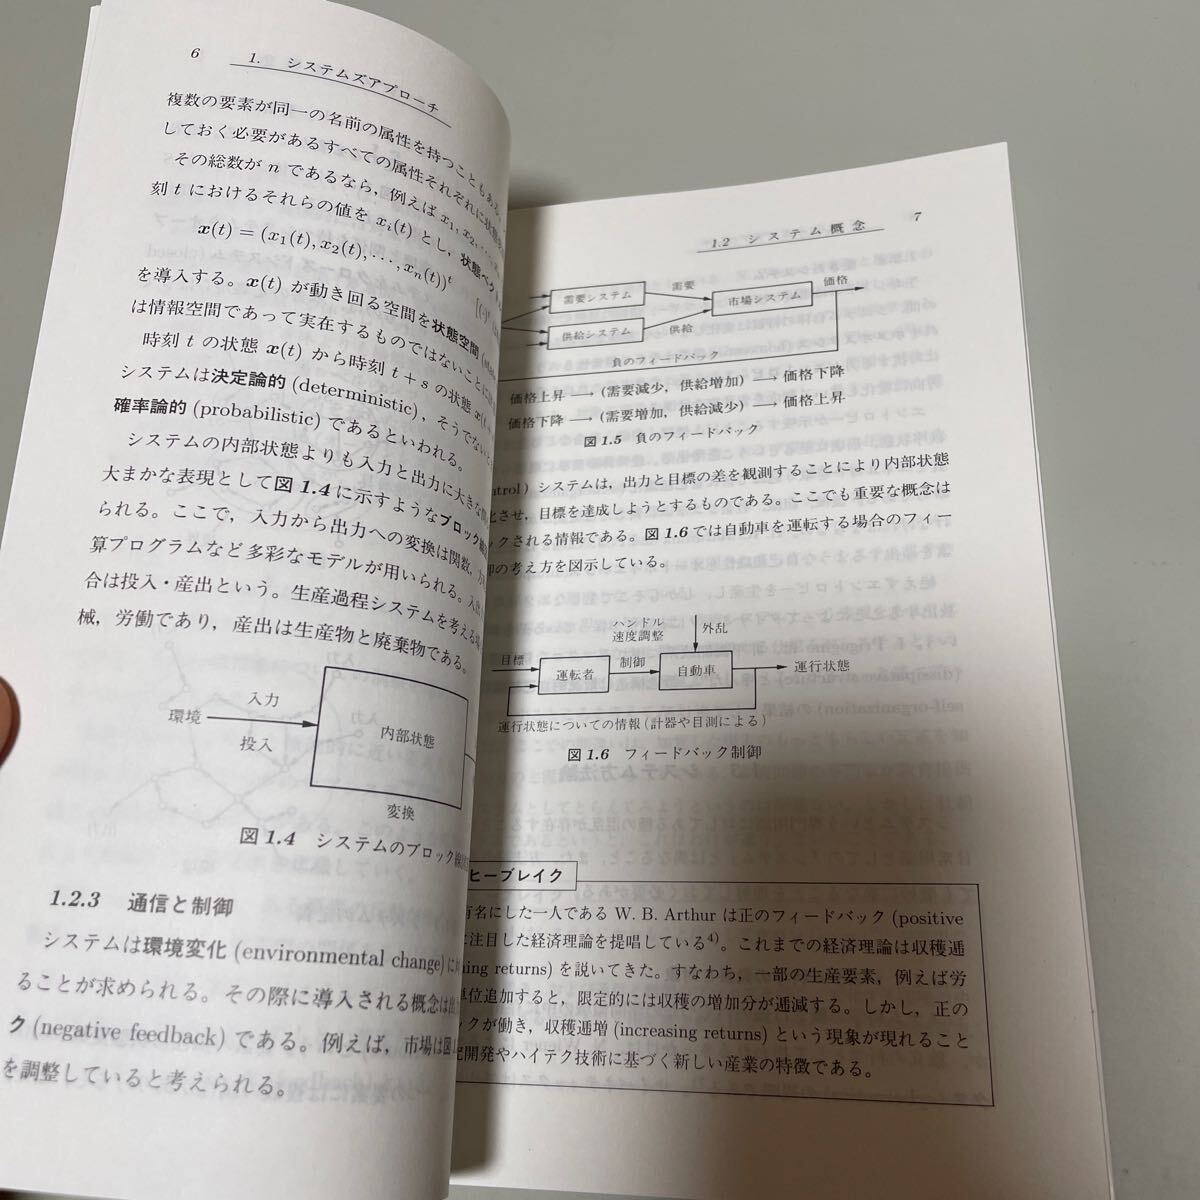 6　1.　システムズアプローチ
複数の要素が同一の名前の属性を持つこともある。
しておく必要があるすべての属性それぞれに状態変
その総数が n であるなら，例えば x1, x2, …, x
刻 t におけるそれらの値を xi(t) とし，状態ベクト
x(t) = (x1(t), x2(t), ⋯, xn(t))^t
を導入する。x(t) が動き回る空間を状態空間
は情報空間であって実在するものではないことに
時刻 t の状態 x(t) から時刻 t + s の状態
システムは決定論的 (deterministic)，そうでない
確率論的 (probabilistic) であるといわれる。
システムの内部状態よりも入力と出力に大きな
大まかな表現として図 1.4 に示すようなブロック
られる。ここで，入力から出力への変換は関数，方
算プログラムなど多彩なモデルが用いられる。入出
合は投入・産出という。生産過程システムを考える場
械，労働であり，産出は生産物と廃棄物である。
入力
環境
投入
内部状態
変換
図 1.4　システムのブロック
1.2.3　通信と制御
システムは環境変化 (environmental change) に
ることが求められる。その際に導入される概念は出
ク (negative feedback) である。例えば，市場は図
を調整していると考えられる。
1.2　システム概念　7
需要システム
需要
市場システム
価格
供給システム
供給
負のフィードバック
価格上昇 ⟶ (需要減少，供給増加) ⟶ 価格下降
価格下降 ⟶ (需要増加，供給減少) ⟶ 価格上昇
図 1.5　負のフィードバック
ntrol）システムは，出力と目標の差を観測することにより内部状態
とさせ，目標を達成しようとするものである。ここでも重要な概念は
ックされる情報である。図 1.6 では自動車を運転する場合のフィー
卸の考え方を図示している。
ハンドル
速度調整
外乱
目標
運転者
制御
自動車
運行状態
運行状態についての情報 (計器や目測による)
図 1.6　フィードバック制御
ヒーブレイク
有名にした一人である W. B. Arthur は正のフィードバック (positive
に注目した経済理論を提唱している4)。これまでの経済理論は収穫逓
ing returns) を説いてきた。すなわち，一部の生産要素，例えば労
単位追加すると，限定的には収穫の増加分が逓減する。しかし，正の
ックが働き，収穫逓増 (increasing returns) という現象が現れること
究開発やハイテク技術に基づく新しい産業の特徴である。